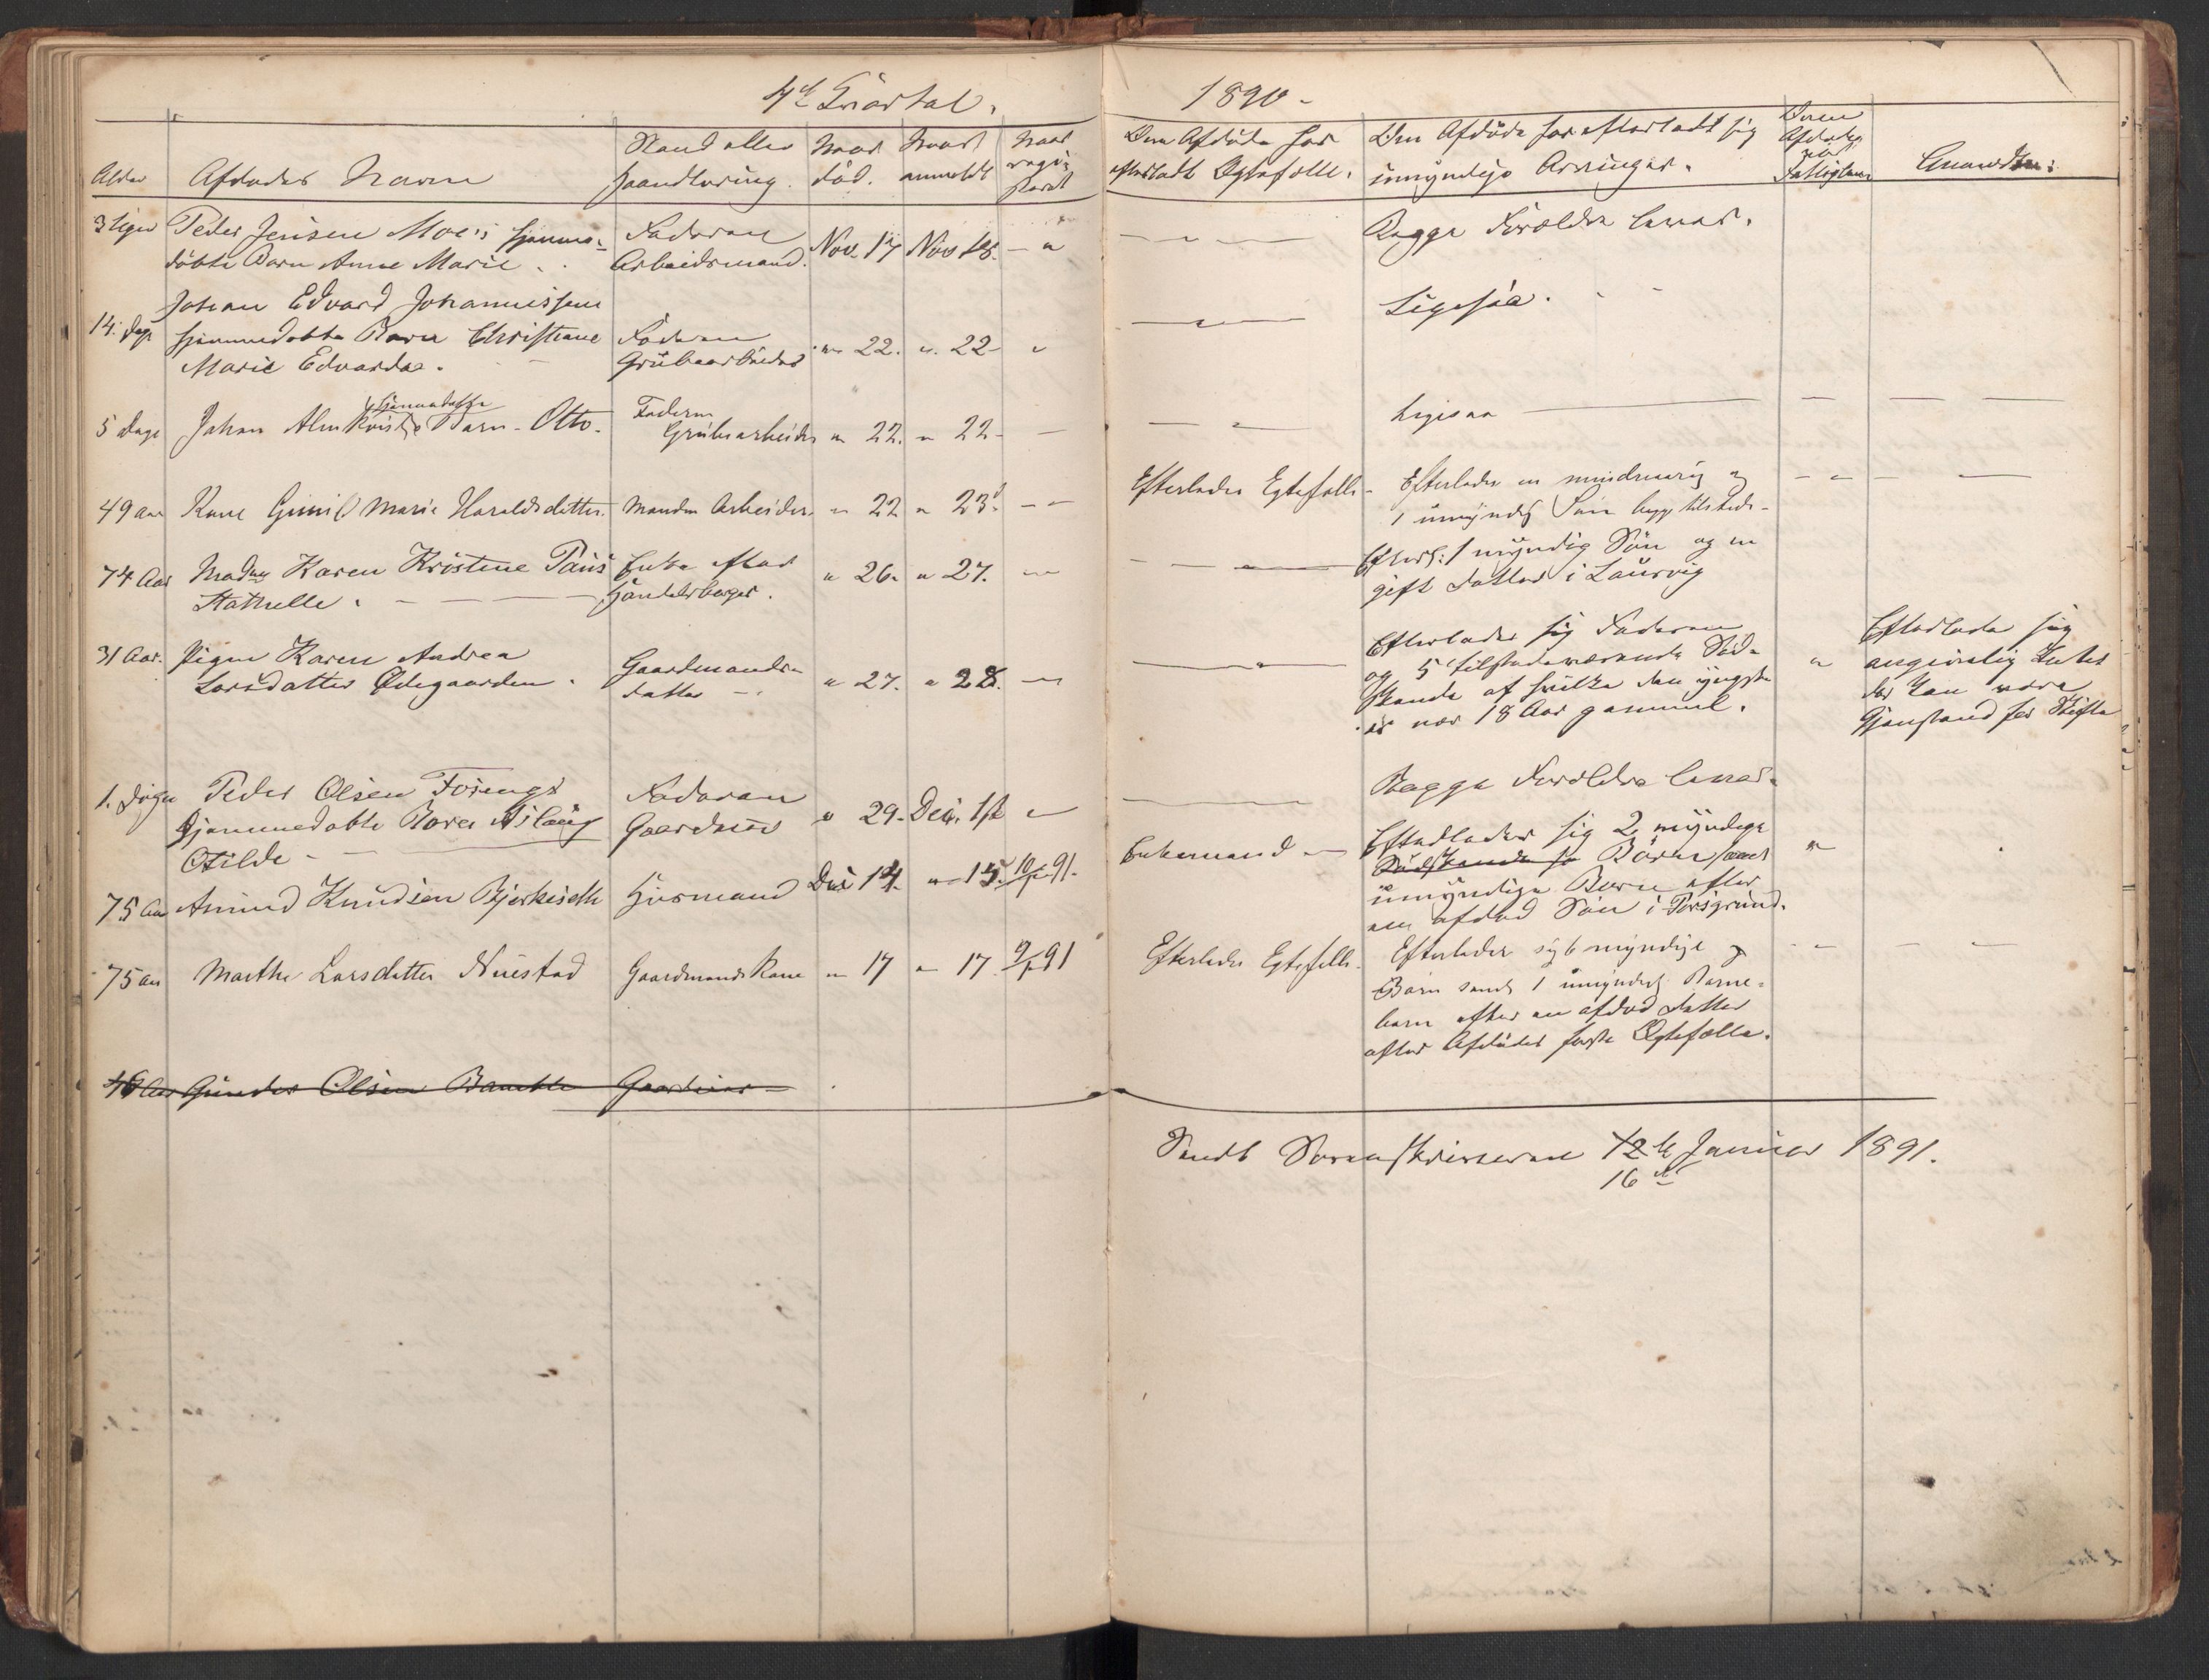 4de Qvartal. 1890 -
Alder
Afdødes Navn
Stand eller
Haandtering.
Naar
død.
Naar
anmeldt
Naar
regi-
strert
Den Afdøde har
efterladt Egtefælle.
Den Afdøde har efterladt sig
umyndige Arvinger.
Anmærkn:
3 Uger Peder Jensen Moe's hjemme- Faderen Nov. 17 Nov 18. — " — " — Begge Forældre lever.
døbte Barn Anne Marie . . Arbeidsmand.
Johan Edvard Johannissens Ligesaa.
14. Dage hjemmedøbte Barn Christiane Faderen " 22. " 22 - "
Marie Edvarda. Grubearbeider
hjemmedøbte
5 Dage Johan Almkvists Barn - Otto. Faderen Ligesaa
Grubearbeider " 22. " 22 - —
49 Aar Kone Gunild Marie Haraldsdatter. Manden Arbeider. " 22 " 23. - " Efterlader Egtefælle - Efterlader en mindreaarig og
1 umyndig Søn begge tilstede -
74 Aar Madam Karen Kristine Paus Enke efter " 26. " 27. Efterl: 1 myndig Søn og en
Stathelle. - - - Handelsborger. gift Datter i Laurvig
31 Aar. Pigen Karen Andrea Gaardmands- " 27. " 28. Efterlader sig Faderen
Larsdatter Ødegaarden. datter og 5 tilstedeværende Sød-
skende af hvilke den yngste
er over 18 Aar gammel.
Efterlade sig
angivelig Intet
der kan være
Gjenstand for Skifte
1. Døgn Peder Olsen Fosengs Faderen " 29. Dec. 1ste " Begge Forældre lever.
hjemmedøbte Barn Aslaug Gaardmand
Otilde -
75 Aar Amund Knudsen Bjerkeseth Husmand Dec 14. " 15. 10/1 91. Enkemand - Efterlader sig 2 myndige
Sødskende Børn samt
umyndige Børn efter
en afdød Søn i Porsgrund.
75 Aar Marthe Larsdatter Nustad Gaardmands Kone " 17 " 17 9/1 91 Efterlader Egtefelle - Efterlader sig 6 myndige
Børn samt 1 umyndig Barne-
barn efter en afdød Datter
efter Afdødes første Egtefælle.
46 Aar Gunder Olsen Bamble Gaardeier -
Sendt Sorenskriveren 12te Januar 1891.
16de